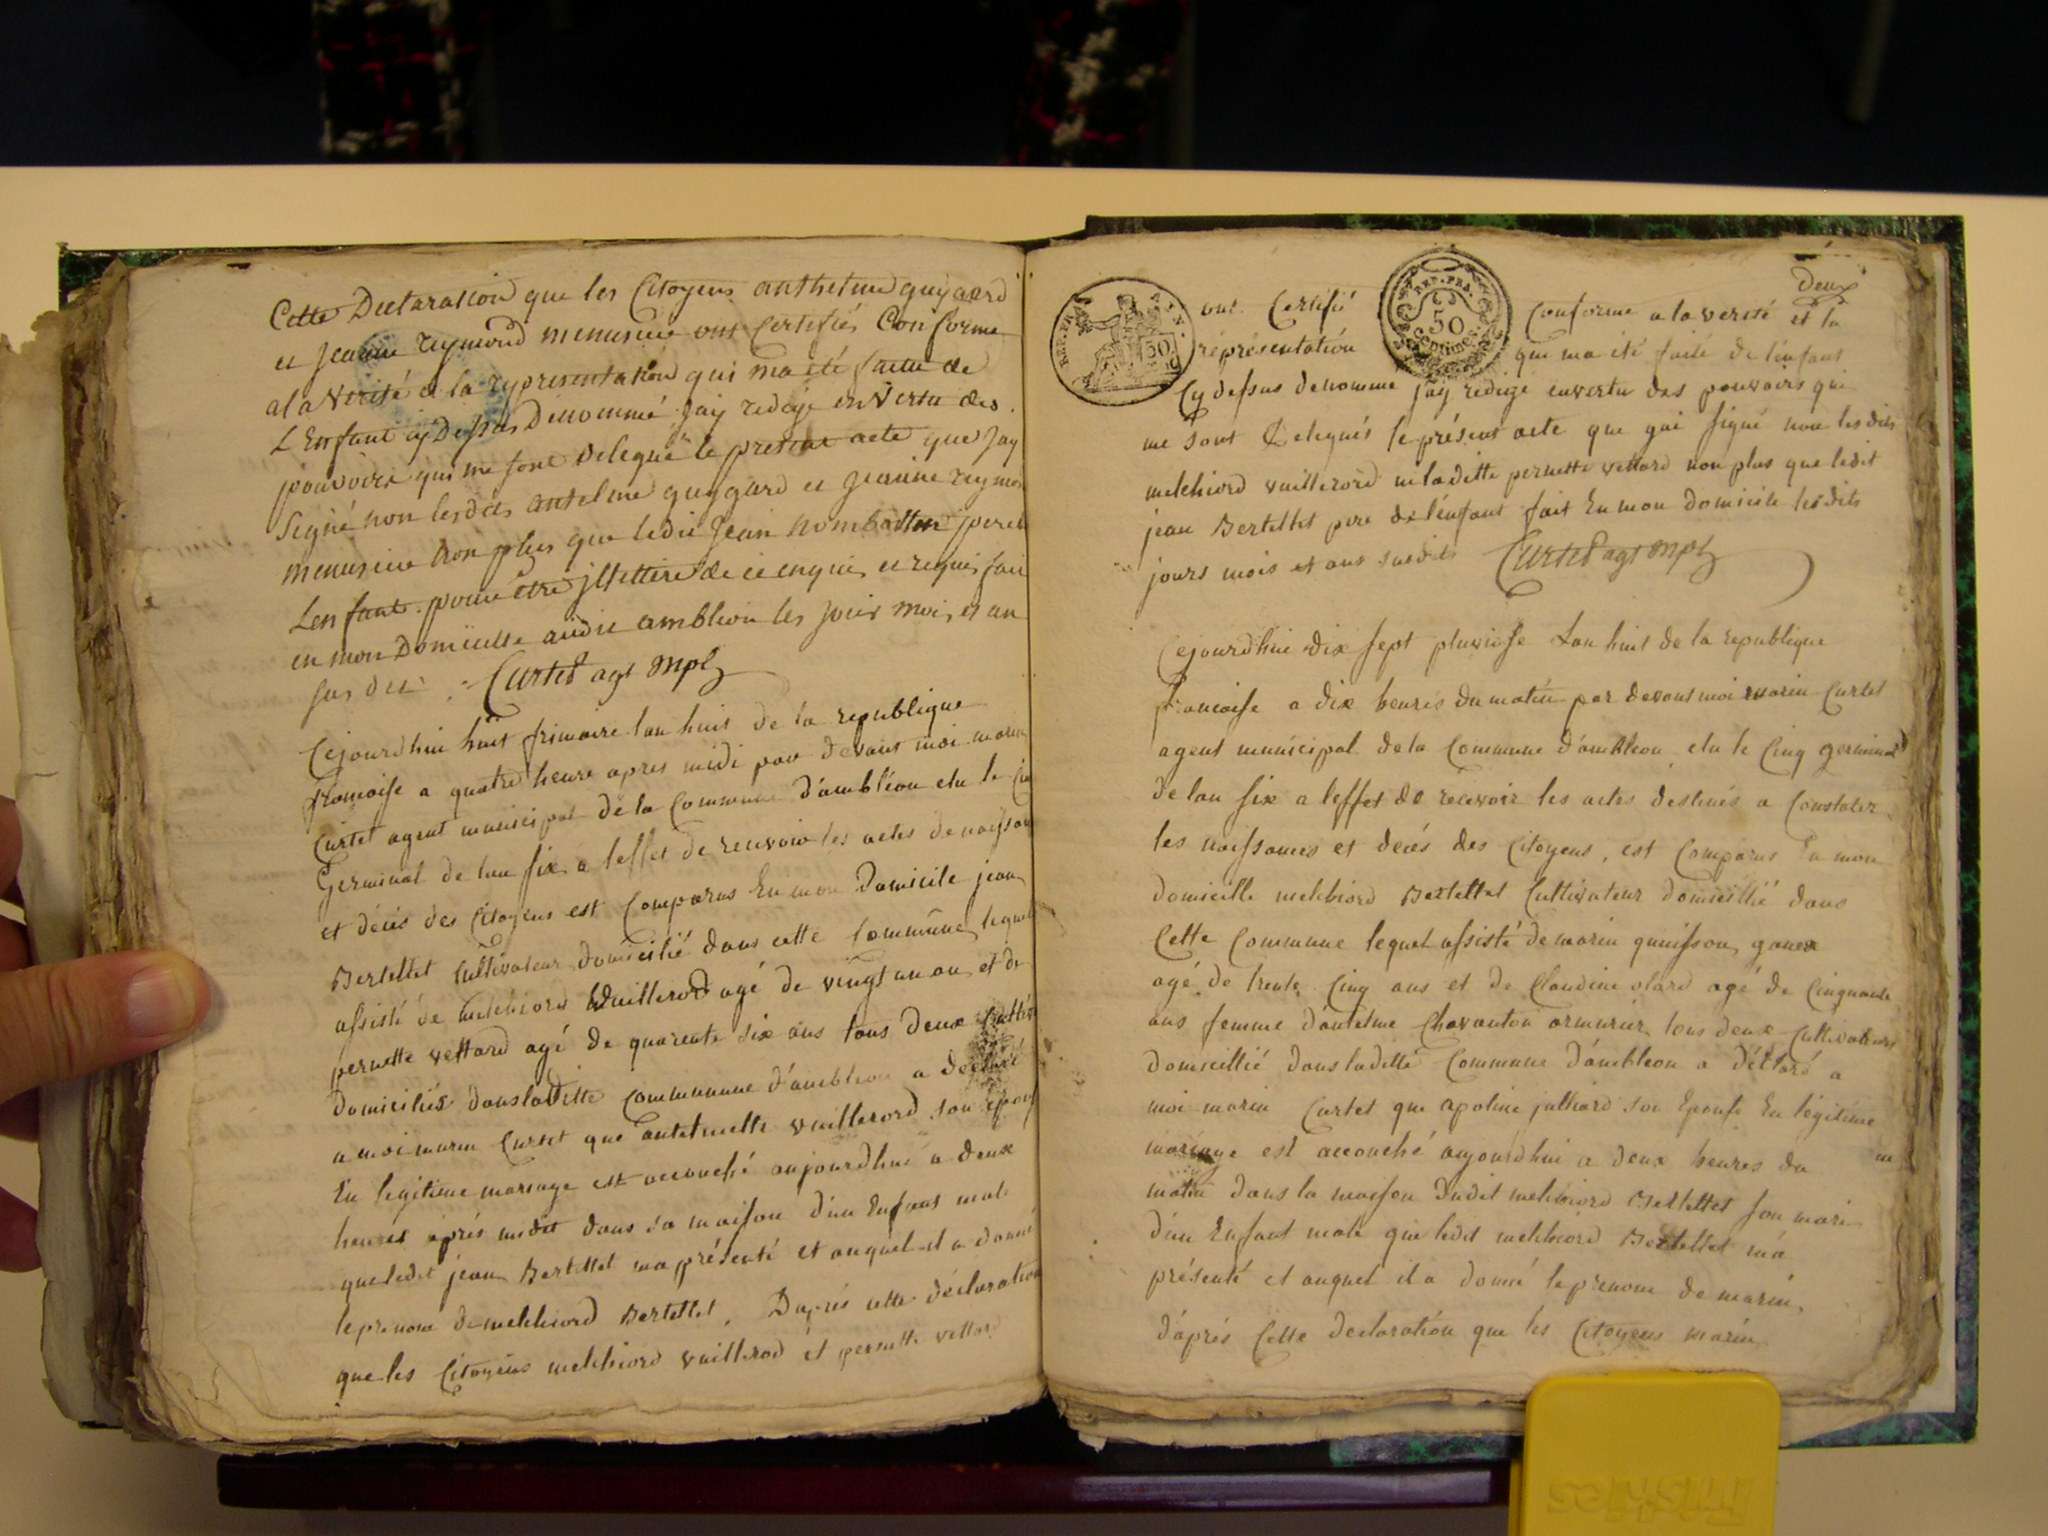 Cette Declaration que les Citoyens anthelme guygard
et jeanne reymond menusiere ont Certifiés Conforme
a la Verité a la representation qui ma été faitte de
L'Enfant cy Dessus Dénommé jay redigé en Vertu des
pouvoirs qui me sont delegué le present acte que jay
Signé non lesdits antelme guygard et jeanne reymon
menusiere non plus que ledit jean pere d
Lenfant pour être jlletteré de ce enquis et requis fait
en mon Domicille audit ambleon les jour mois et an
sus dit Curtet agt mpl
Cejourdhui huit frimaire lan huit de la republique
françoise a quatre heure apres midi par devant moi marin
Curtet agent municipal de la Commune d'ambléon elu le Cin
Germinal de lan six a leffet de recevoir les actes de naissan
et décès des Citoyens est Comparus En mon Domicile jean
Bertellet Cultivateur domicilié dans cette Commune lequel
assisté de melchiord Vuillerord agé de vingt un an et de
pernette vettard agé de quarente six ans tous deux Cultiv
domiciliés dans laditte Communune d'ambleon a déclaré
a moi marin Curtet que antelmette vuillerord son épous
En legitime mariage est accouché aujourdhui a deux
heures après midit dans sa maison d'un Enfant male
que ledit jean Bertellet ma présenté et auquel il a donné
le prenom de melchiord Bertellet. D'après cette déclaration
que les Citoyens melchiord vuillerod et pernette vettard
deux
REP. FRA.
50
REP. FRA.
50
Centimes
ont Certifié Conforme a la verité et la
représentation qui ma été faite de lenfant
Cy dessus denomme jay redigé en vertu des pouvoirs qui
me sont Delegués le présent acte que jai signé non les dits
melchiord vuillerord ni laditte pernette vettard non plus que ledit
jean Bertellet pere de lénfant fait En mon domicile les dits
jours mois et ans susdits Curtet agt mpl
Cejourdhui dix sept pluviose Lan huit de la republique
francoise a dix heures du matin par devant moi marin Curtet
agent municipal de la Commune d'ambleon elu le Cinq germinal
de lan six a leffet de recevoir les actes destinés a Constater
les naissances et decés des Citoyens, est Comparus En mon
domicille melchiord Bertellet Cultivateur domicillié dans
Cette Commune lequel assisté de marin
agé de trente Cinq ans et de Claudine olard agé de Cinquante
ans femme d'antelme Chavanton armurier tous deux Cultivateurs
domicillié dans laditte Commune d'ambleon a déclaré a
moi marin Curtet que apoline julliard son Epouse En légitime
mariage est accouché aujourdhui a deux heures du
matin dans la maison dudit melchiord Bertellet son mari
d'un Enfant male que ledit melchiord Bertellet m'a
présenté et auquel il a donné le prenom de marin,
d'après Cette declaration que les Citoyens marin